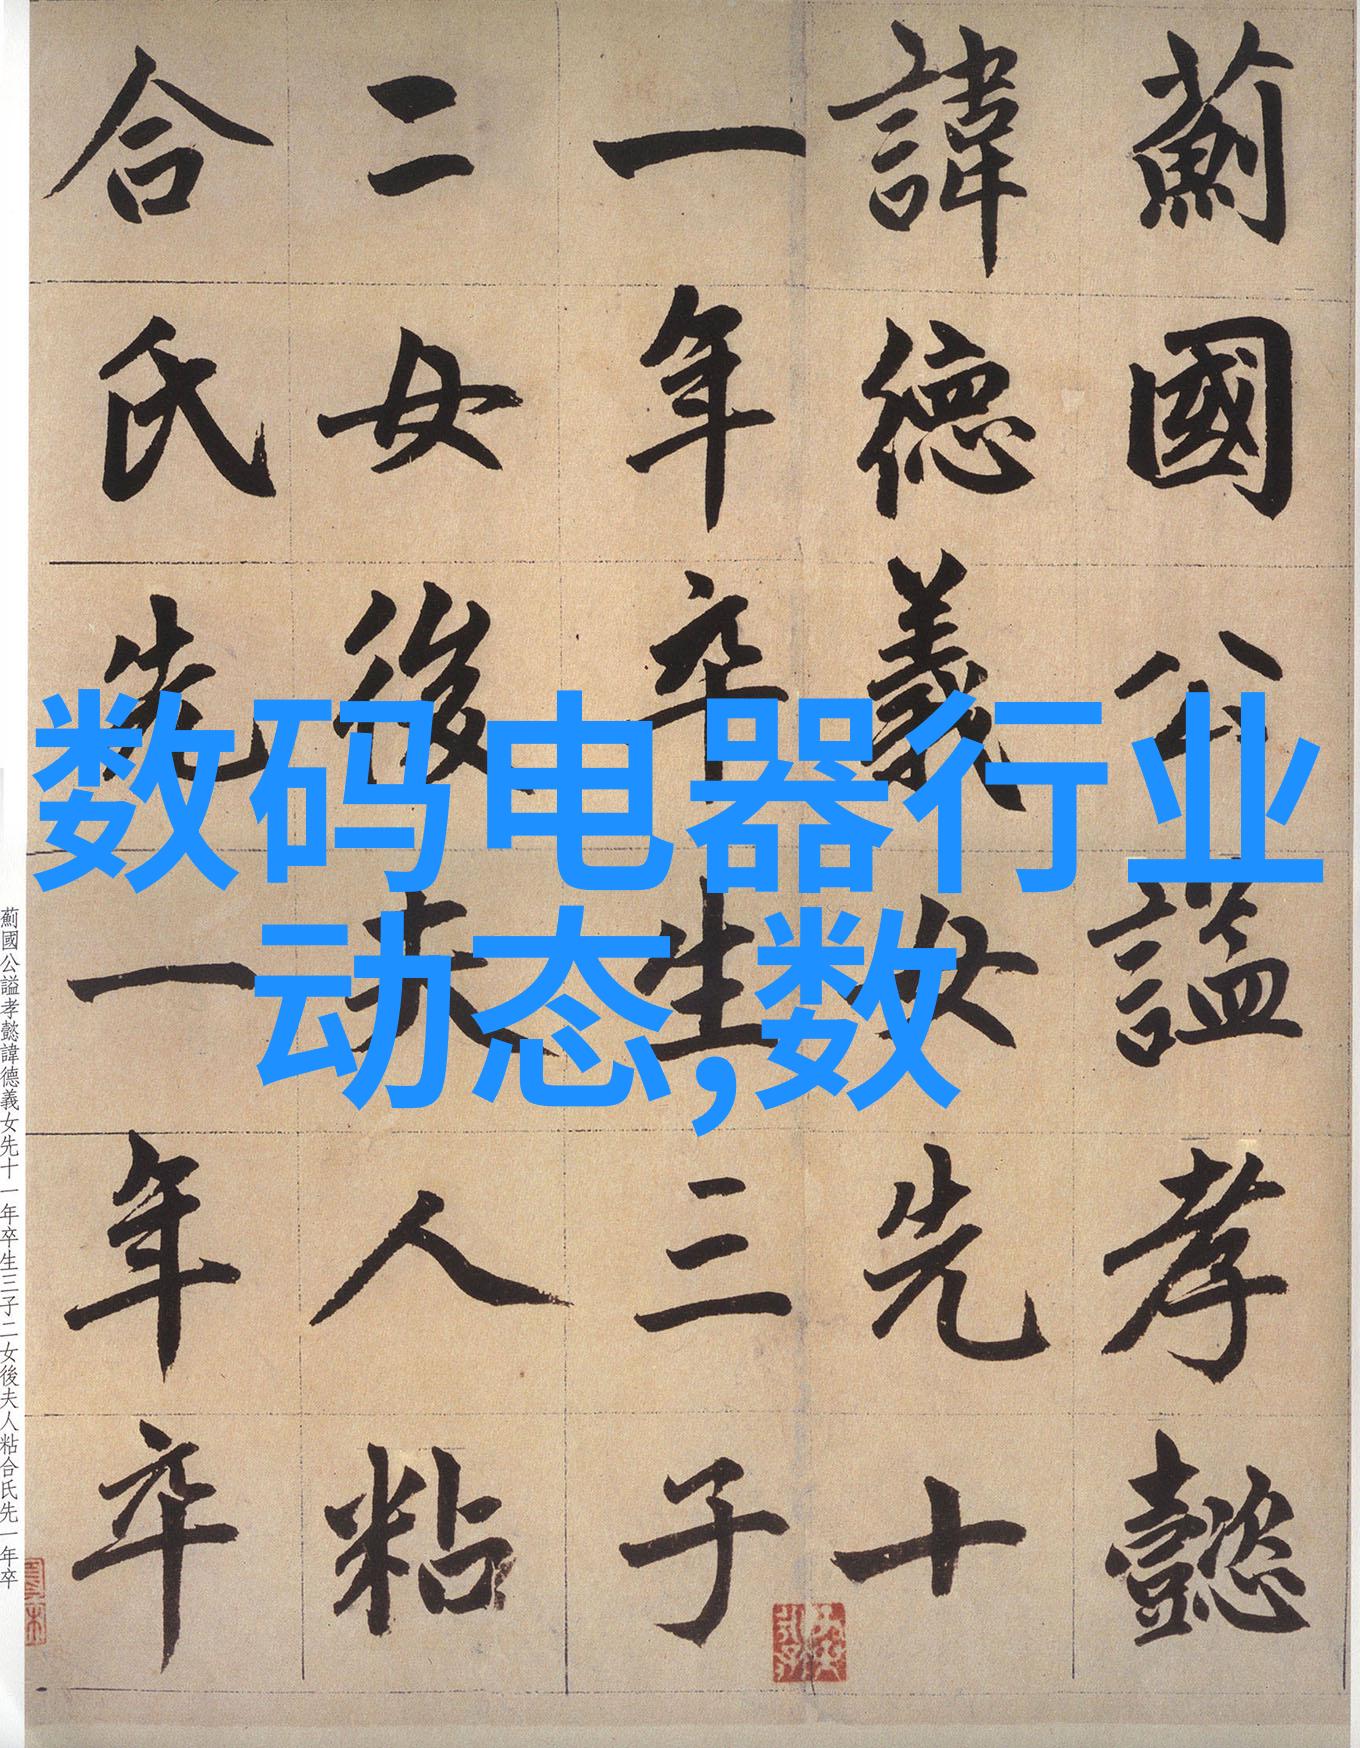 薊國公謚孝懿
諱德義女先十
一年卒生三子
二女後夫人粘
合氏先一年卒
数码电器行业
动态,数
薊國公謚孝懿諱德義女先十一年卒生三子二女後夫人粘合氏先一年卒